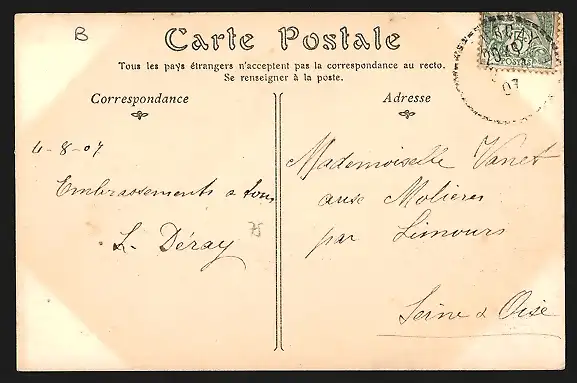 B
Carte Postale
Tous les pays étrangers n'acceptent pas la correspondance au recto.
Se renseigner à la poste.
Correspondance
Adresse
4-8-07
Embrassements a tous
L. Déray
75
Mademoiselle Vanet
aux Molières
par Limours
Seine & Oise
POSTES
07